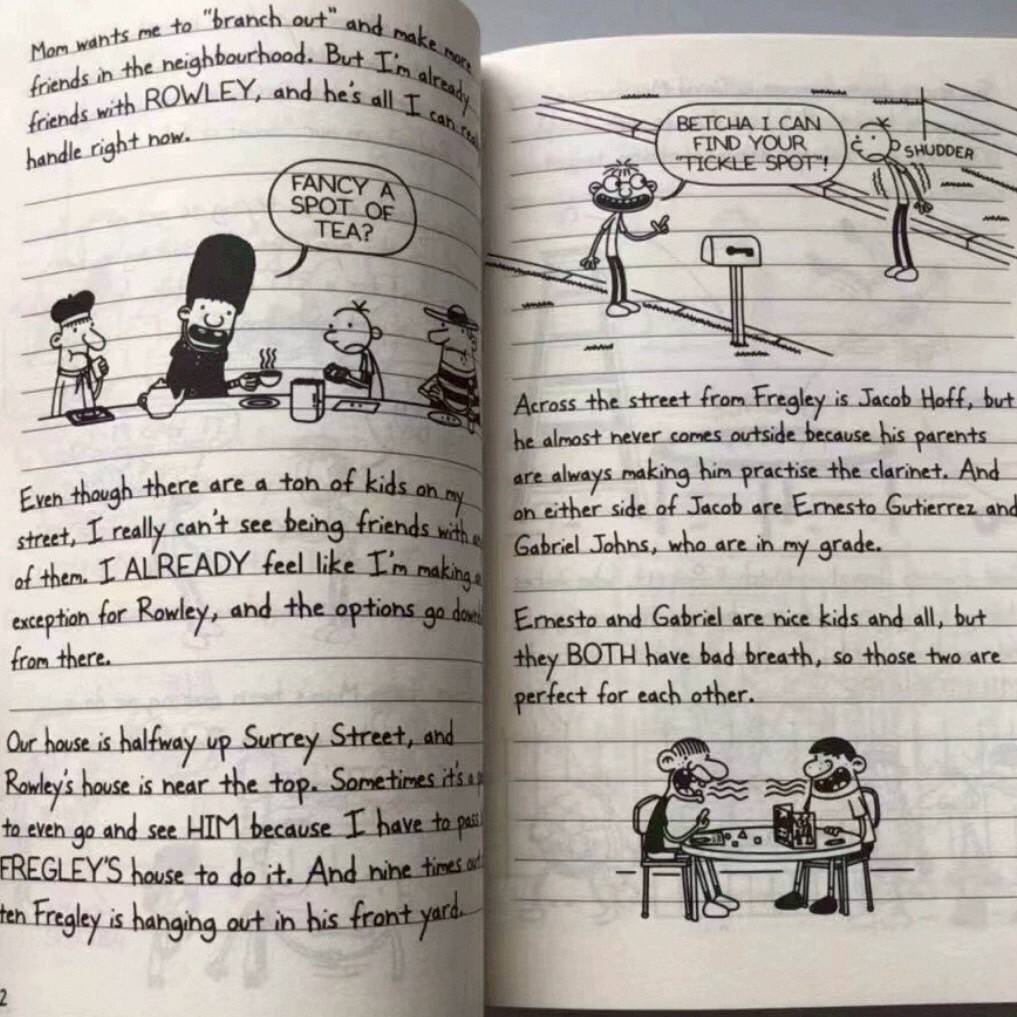 Mom wants me to "branch out" and make more
friends in the neighbourhood. But I'm already
friends with ROWLEY, and he's all I can
handle right now.
FANCY A
SPOT OF
TEA?
Even though there are a ton of kids on my
street, I really can't see being friends with
of them. I ALREADY feel like I'm making
exception for Rowley, and the options go down
from there.
Our house is halfway up Surrey Street, and
Rowley's house is near the top. Sometimes it's a
to even go and see HIM because I have to pass
FREGLEY'S house to do it. And nine times out
ten Fregley is hanging out in his front yard.
2
BETCHA I CAN
FIND YOUR
"TICKLE SPOT"!
SHUDDER
Across the street from Fregley is Jacob Hoff, but
he almost never comes outside because his parents
are always making him practise the clarinet. And
on either side of Jacob are Ernesto Gutierrez and
Gabriel Johns, who are in my grade.
Ernesto and Gabriel are nice kids and all, but
they BOTH have bad breath, so those two are
perfect for each other.